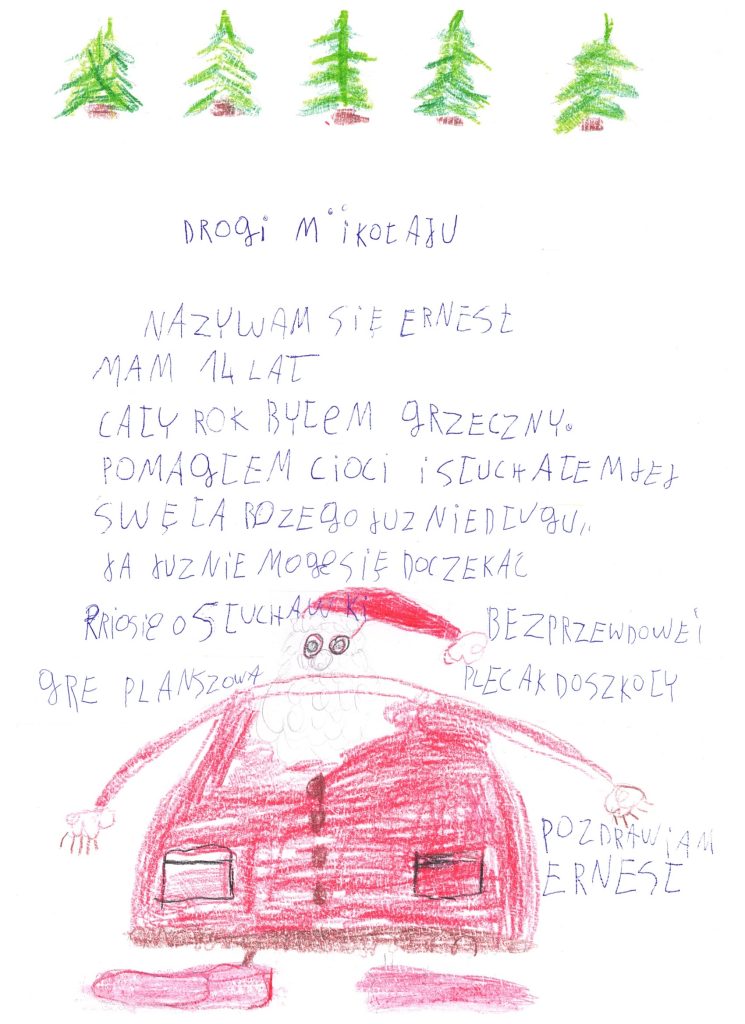 DROGI MIKOŁAJU
NAZYWAM SIĘ ERNEST
MAM 14 LAT
CAŁY ROK BYŁEM GRZECZNY.
POMAGŁEM CIOCI I SŁUCHAŁEM JEJ
ŚWĘTA BOZEGO JUZ NIEDŁUGU..
JA JUZ NIE MOGE SIĘ DOCZEKAĆ
PRIOSIĘ O SŁUCHAWKI BEZPRZEWDOWEI
GRE PLANSZOWA PLECAK DOSZKOŁY
POZDRAWIAM
ERNEST